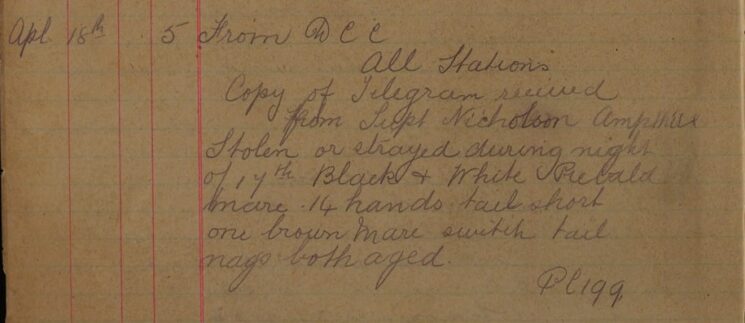 Apl 18th 5 From D C C
All Stations
Copy of Telegram recieved
from Supt Nicholson Ampthill
Stolen or strayed during night
of 17th Black & White Piebald
mare 14 hands tail short
one brown Mare switch tail
nags both aged.
PC 199